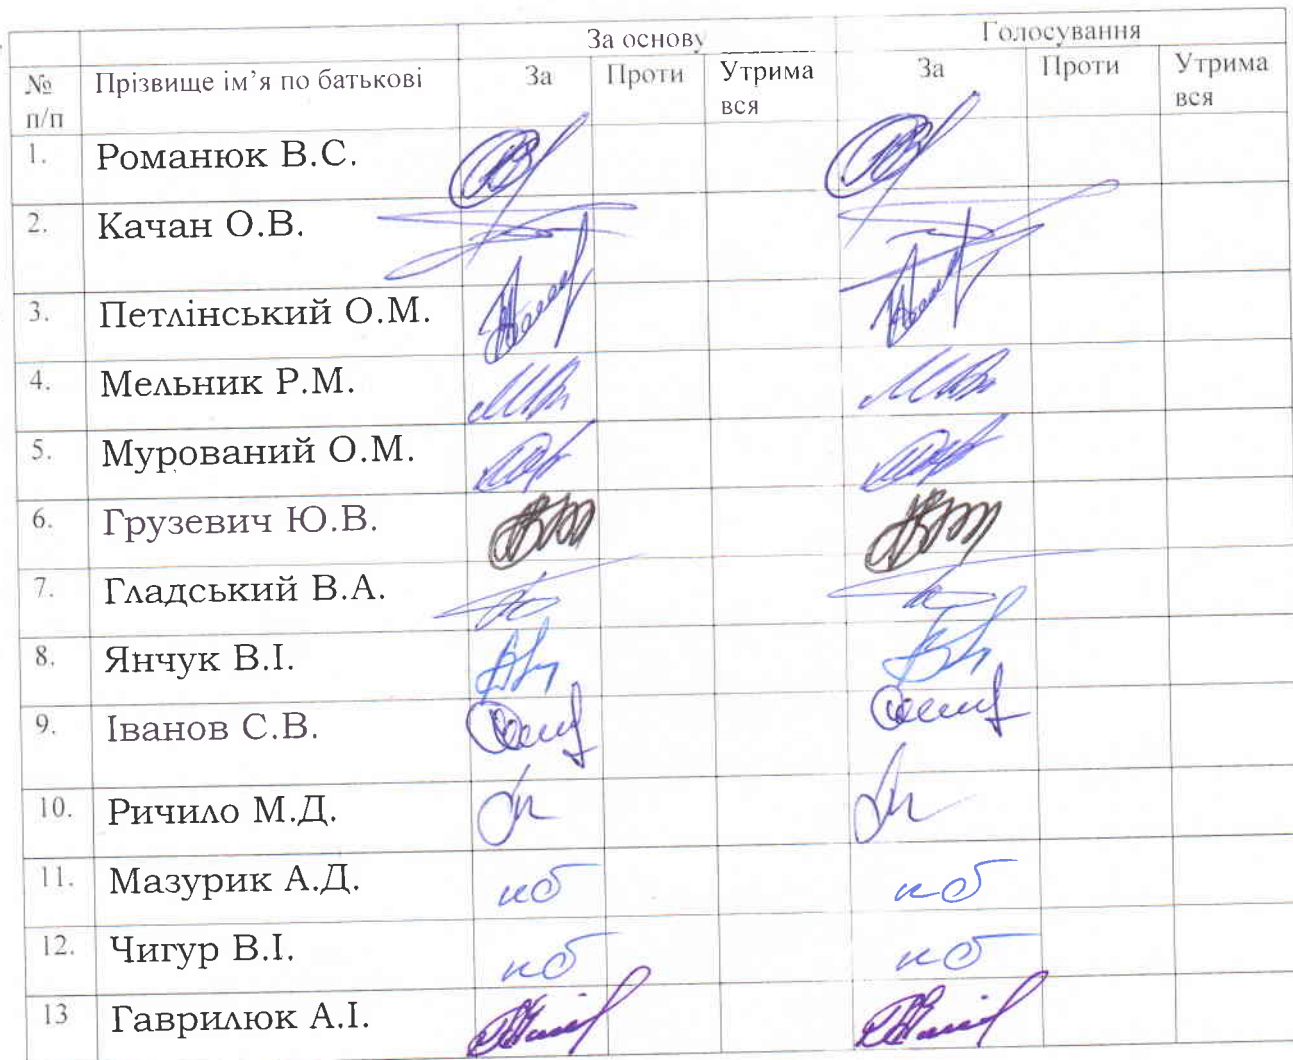 За основу Голосування
№ п/п Прізвище ім’я по батькові За Проти Утрима вся За Проти Утрима вся
1. Романюк В.С.
2. Качан О.В.
3. Петлінський О.М.
4. Мельник Р.М.
5. Мурований О.М.
6. Грузевич Ю.В.
7. Гладський В.А.
8. Янчук В.І.
9. Іванов С.В.
10. Ричило М.Д.
11. Мазурик А.Д. нб нб
12. Чигур В.І. нб нб
13 Гаврилюк А.І.